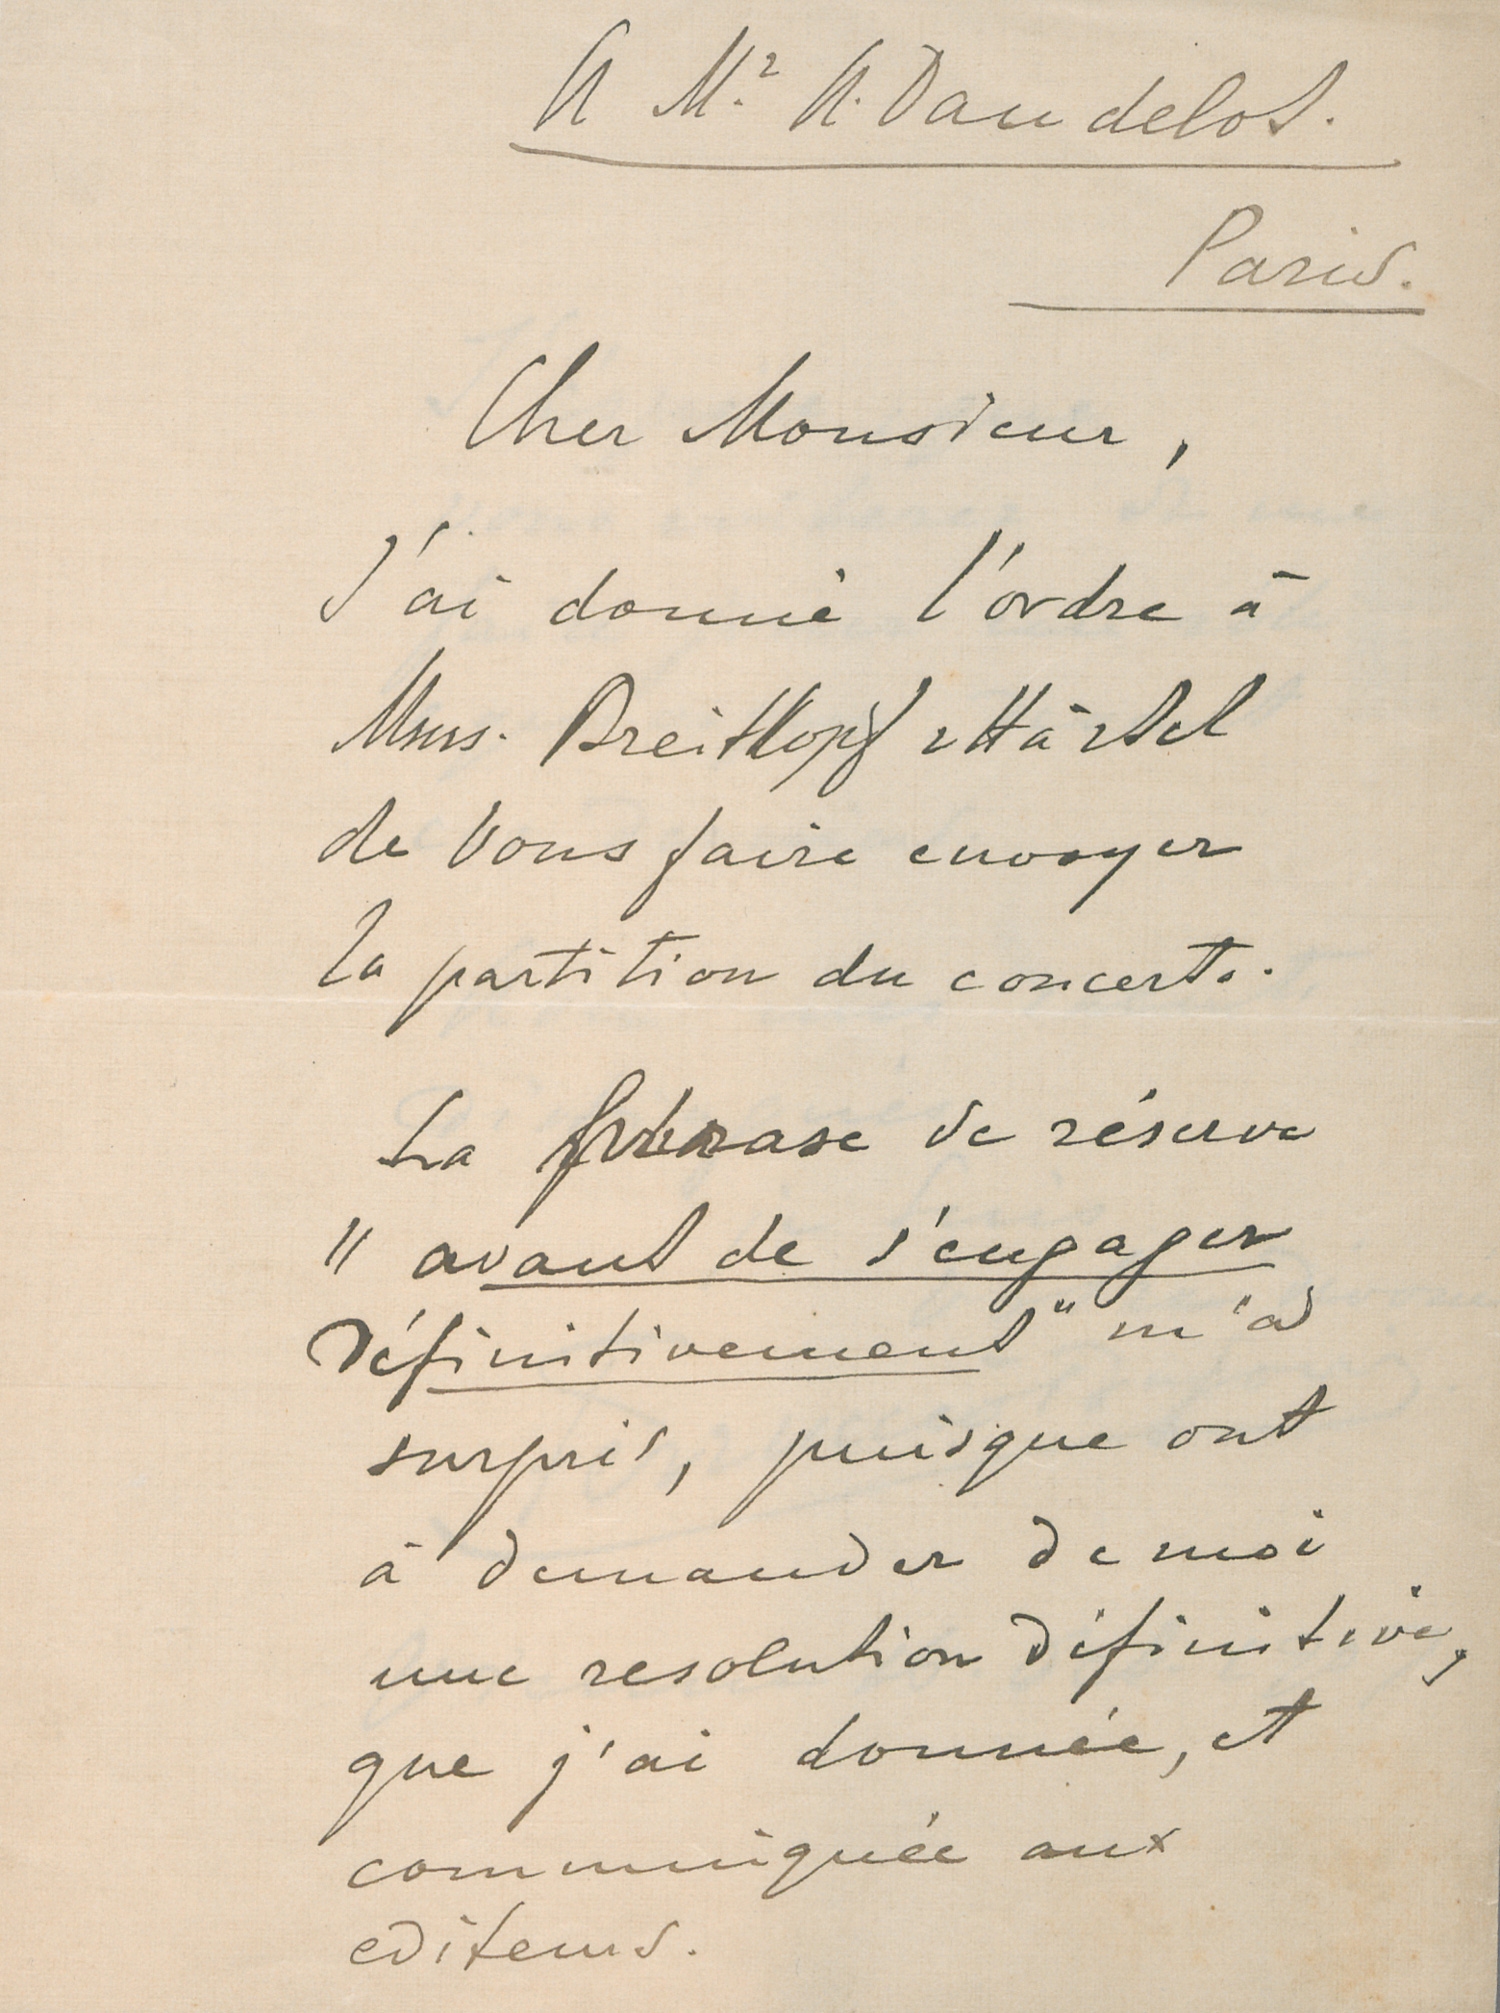 A Mr. A. Dandelot.
Paris.
Cher Monsieur,
J'ai donné l'ordre à
Mssrs. Breitkopf et Härtel
de Vous faire envoyer
la partition du concerto.
La phrase de réserve
" avant de s'engager
définitivement" m'a
surpris, puisque ont
à demander de moi
une resolution définitive,
que j'ai donnée, et
communiquée aux
editeurs.